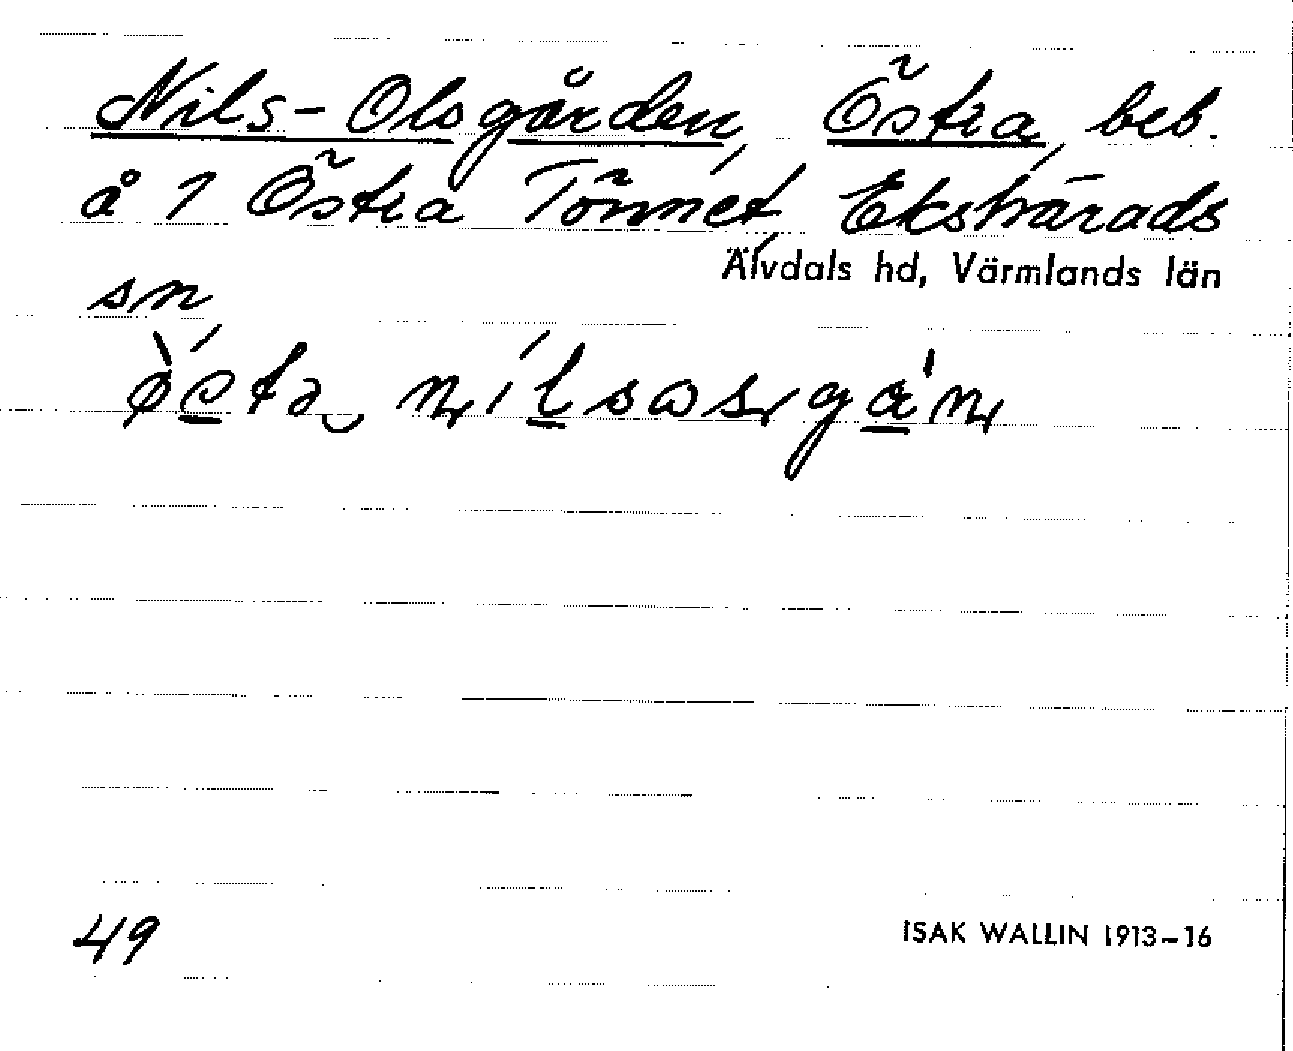 Nils-Olsgården, Östra, beb.
å 1 Östra Tönnet, Ekshärads
Älvdals hd, Värmlands län
sn
49
ISAK WALLIN 1913-16